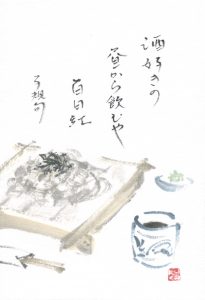 酒好きの
昼から飲むや
百日紅
子規句